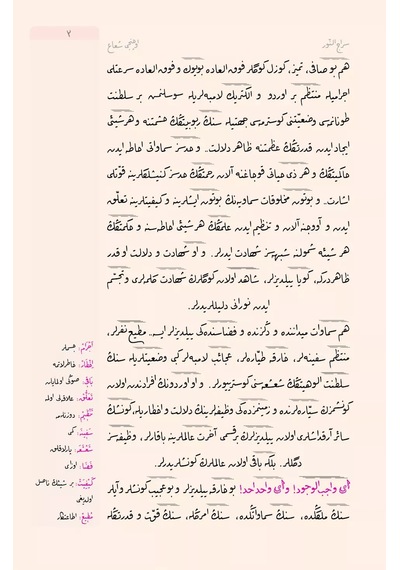 ٧
سراج النور
اوچنجی شعاع
هم بو صافی، تمیز، كوزل كوكلر فوق العاده بویوك و فوق العاده سرعتلی
اجرامیله منتظم بر اوردو و الكتریك لامبه‌لریله سوسلنمش بر سلطنت
طونانمسی وضعیتنی كوسترمسی جهتیله سنڭ ربوبیتڭڭ حشمتنه و هر شیئی
ایجاد ایدن قدرتڭڭ عظمتنه ظاهر دلالت.. و حدسز سماواتی احاطه ایدن
حاكمیتڭڭ و هر ذی حیاتی قوجاغنه آلان رحمتڭڭ حدسز كنیشلكلرینه قوتلی
اشارت.. و بوتون مخلوقات سماویه‌نڭ بوتون ایشلرینه و كیفیتلرینه تعلق
ایدن و آووجنه آلان و تنظیم ایدن علمڭڭ هر شیئی احاطه‌سنه و حكمتڭڭ
هر شیئه شمولنه شبهه‌سز شهادت ایدرلر. و او شهادت و دلالت او قدر
ظاهردركه، كویا ییلدیزلر، شاهد اولان كوكلرڭ شهادت كلمه‌لری و تجسم
ایدن نورانی دلیللریدرلر.
هم سماوات میداننده و دكزنده و فضاسنده‌كی ییلدیزلر ایسه، مطیع نفرلر،
منتظم سفینه‌لر، خارقه طیاره‌لر، عجائب لامبه‌لر كبی وضعیتلریله سنڭ
سلطنت الوهیتڭڭ شعشعه‌سنی كوستریورلر. و او اوردونڭ افرادندن اولان
كونشمزڭ سیاره‌لرنده و زمینمزده‌كی وظیفه‌لرینڭ دلالت و اخطاریله، كونشڭ
سائر آرقداشلری اولان ییلدیزلرڭ بر قسمی آخرت عالملرینه باقارلر، وظیفه‌سز
دگللر. بلكه باقی اولان عالملرڭ كونشلریدرلر.
ای واجب الوجود! و ای واحد احد! بو خارقه ییلدیزلر و بو عجیب كونشلر و آیلر
سنڭ ملككده، سنڭ سماواتكده، سنڭ امرڭله، سنڭ قوت و قدرتڭله
اجرام: جسملر
اخطار: خاطرلاتمه
باقی: صوڭی اولمایان
تعلق: علاقه‌لی اولمه
تنظیم: دوزنله‌مه
سفینه: كمی
شعشعه: پارلاقلق
فضا: اوزای
كیفیت: بر شیئڭ ناصل
اولدیغی
مطیع: اطاعتكار